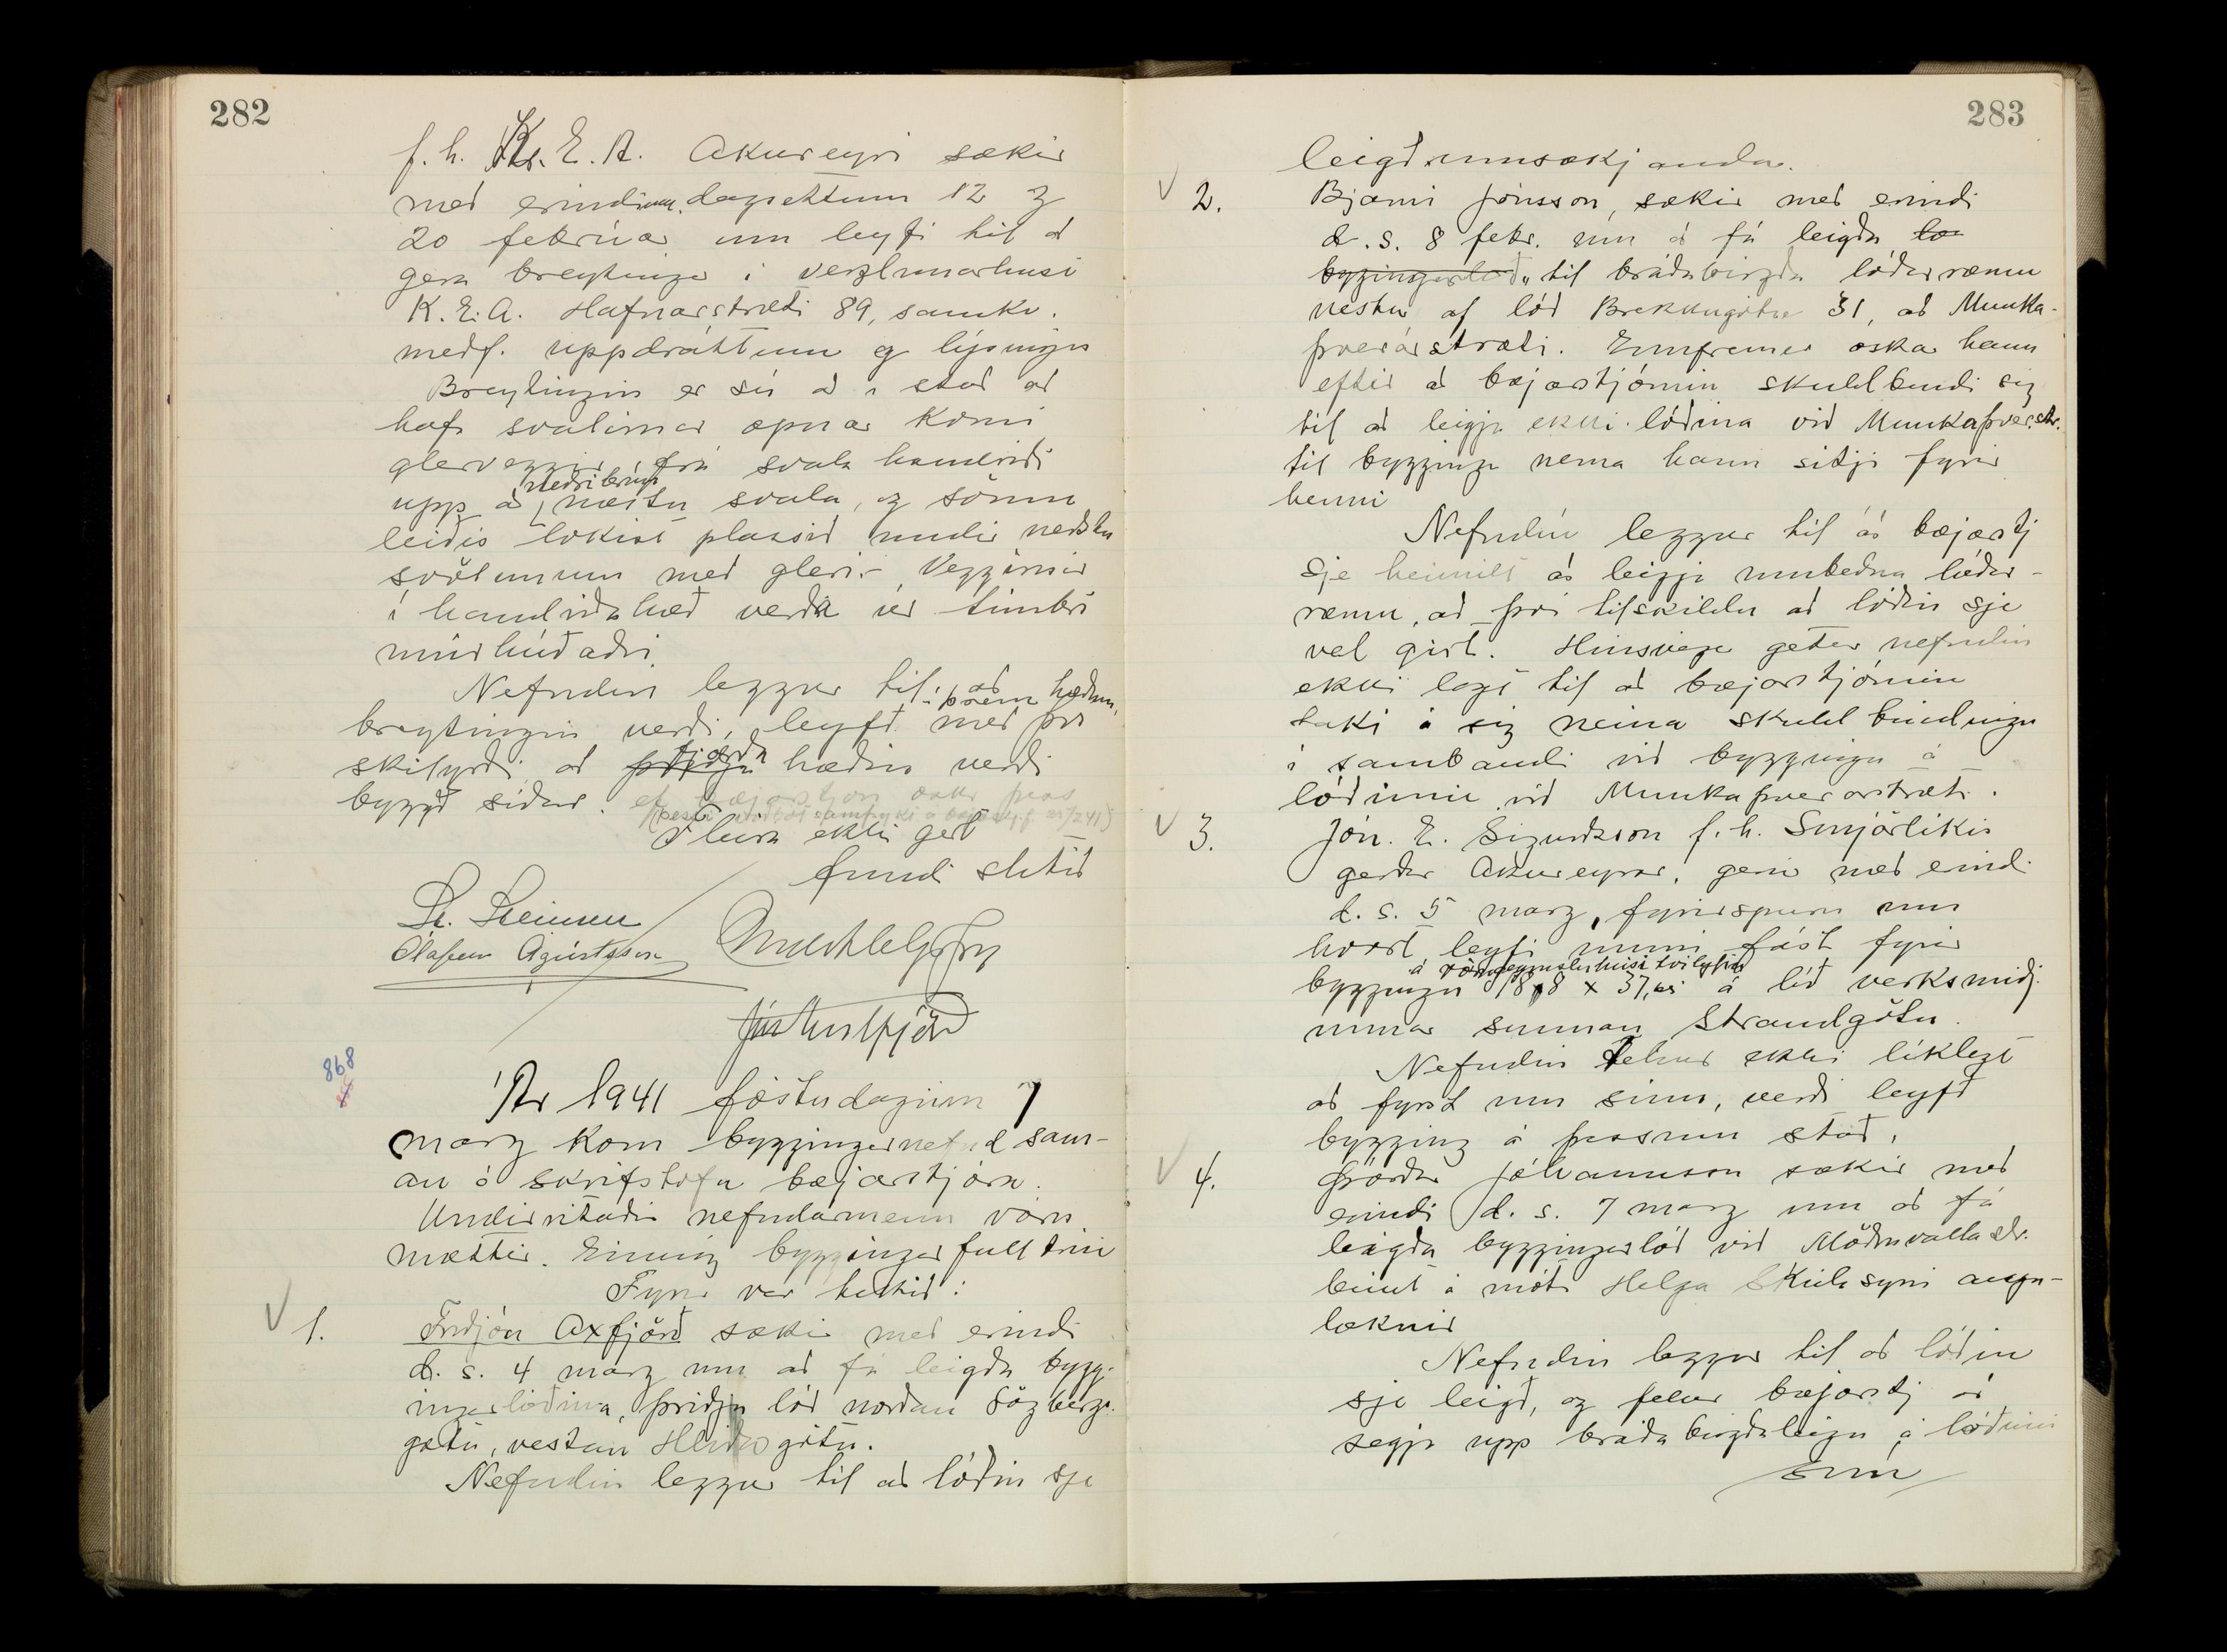 282
f. h. K. E. A. Akureyri sækir
með erindum dagsettum 12 og
20 febrúar um leyfi til að
gera breytingu í verzlunarhusi
K. E. A. Hafnarstræti 89, samkv.
meðf. uppdráttum og lýsingu
Breytingin er sú að í stað að
hafa svalirnar opnar komi
glerveggir frá svala handriði
neðri brún
upp á næstu svala, og sömu
leiðis lokist plássið undir neðstu
svölunum með gleri. Veggirnir
í handriðahæð verða úr timbri
múrhúðaðri.
Nefndin leggur til að
þrem hæðum,
breytingin verði, leyfð með því
fjórða
skilyrði að þriðju hæðin verði
byggð síðar. ef bæjarstjórn óskar þess
Fleira ekki gert
fundi slitið
St. Steinsen
Ólafur Ágústsson
868
Ár 1941 föstudaginn 7
marz kom byggingarnefnd sam-
an á skrifstofu bæjarstjóra.
Undirritaðir nefndarmenn voru
mættir. Einnig byggingarfulltrúi
Fyrir var tekið:
1. Friðjón Axfjörð sækir með erindi
d. s. 4 marz um að fá leigða bygg-
ingarlóðina, þriðju lóð norðan Lögbergs-
götu, vestan Hlíðargötu.
Nefndin leggur til að lóðin sje
283
leigð umsækjanda.
2. Bjarni Jónsson, sækir með erindi
d. s. 8 febr. um að fá leigða lo
byggingarlóð, til bráðabirgða lóðarræmu
vestur af lóð Brekkugötu 31, að Munka-
þverárstræti. Ennfremur óskar hann
eftir að bæjarstjórnin skuldbindi sig
til að leigja ekki lóðina við Munkaþver.str.
til byggingu nema hann sitji fyrir
henni
Nefndin leggur til að bæjarstj
sje heimilt að leigja umbeðna lóðar-
ræmu, að því tilskildu að lóðin sje
vel girt. Hinsvegar getur nefndin
ekki lagt til að bæjarstjórnin
taki á sig neina skuldbindingu
í sambandi við byggingu á
lóðinni við Munkaþverárstræti.
3. Jón. E. Sigurðsson f. h. Smjörlíkis
gerðar Akureyrar, gerir með erindi
d. s. 5 marz, fyrirspurn um
hvort leyfi muni fást fyrir
á vörugeymsluhúsi tvílyftu
byggingu 18,8 x 37,65 á lóð verksmiðj
unnar sunnan Strandgötu.
Nefndin telur ekki líklegt
að fyrst um sinn, verði leyfð
bygging á þessum stað.
4. Þórður Jóhannsson sækir með
erindi d. s. 7 marz um að fá
leigða byggingarlóð við Möðruvallastr.
beint á móti Helga Skúlasyni augn-
læknir
Nefndin leggur til að lóðin
sje leigð, og felur bæjarstj að
segja upp bráðabirgðaleigu á lóðinni